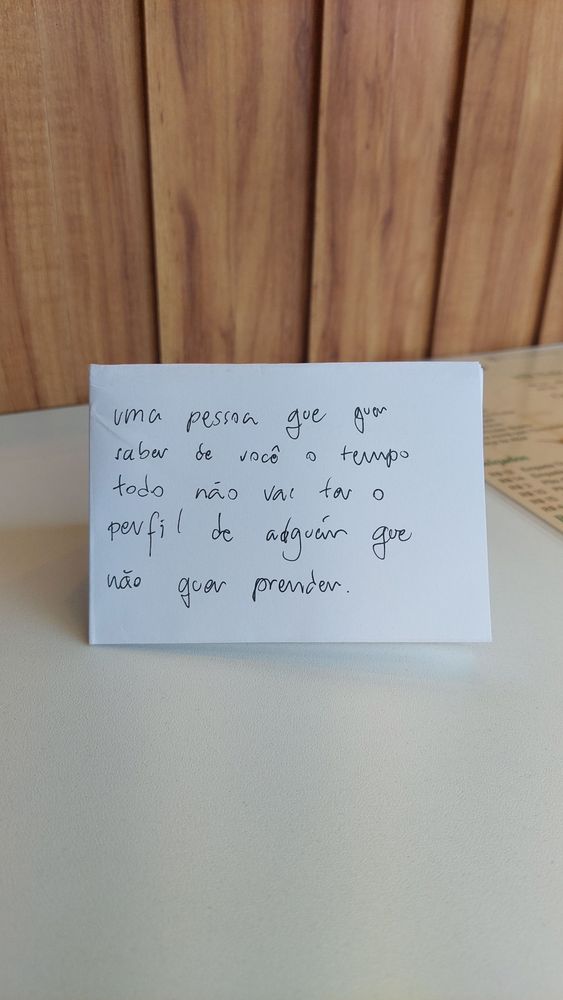 uma pessoa que quer
saber de você o tempo
todo não vai ter o
perfil de alguém que
não quer prender.